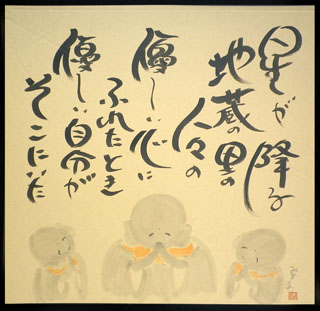 星が降る
地蔵の里の
人々の
優しい心に
ふれたとき
優しい自分が
そこにいた